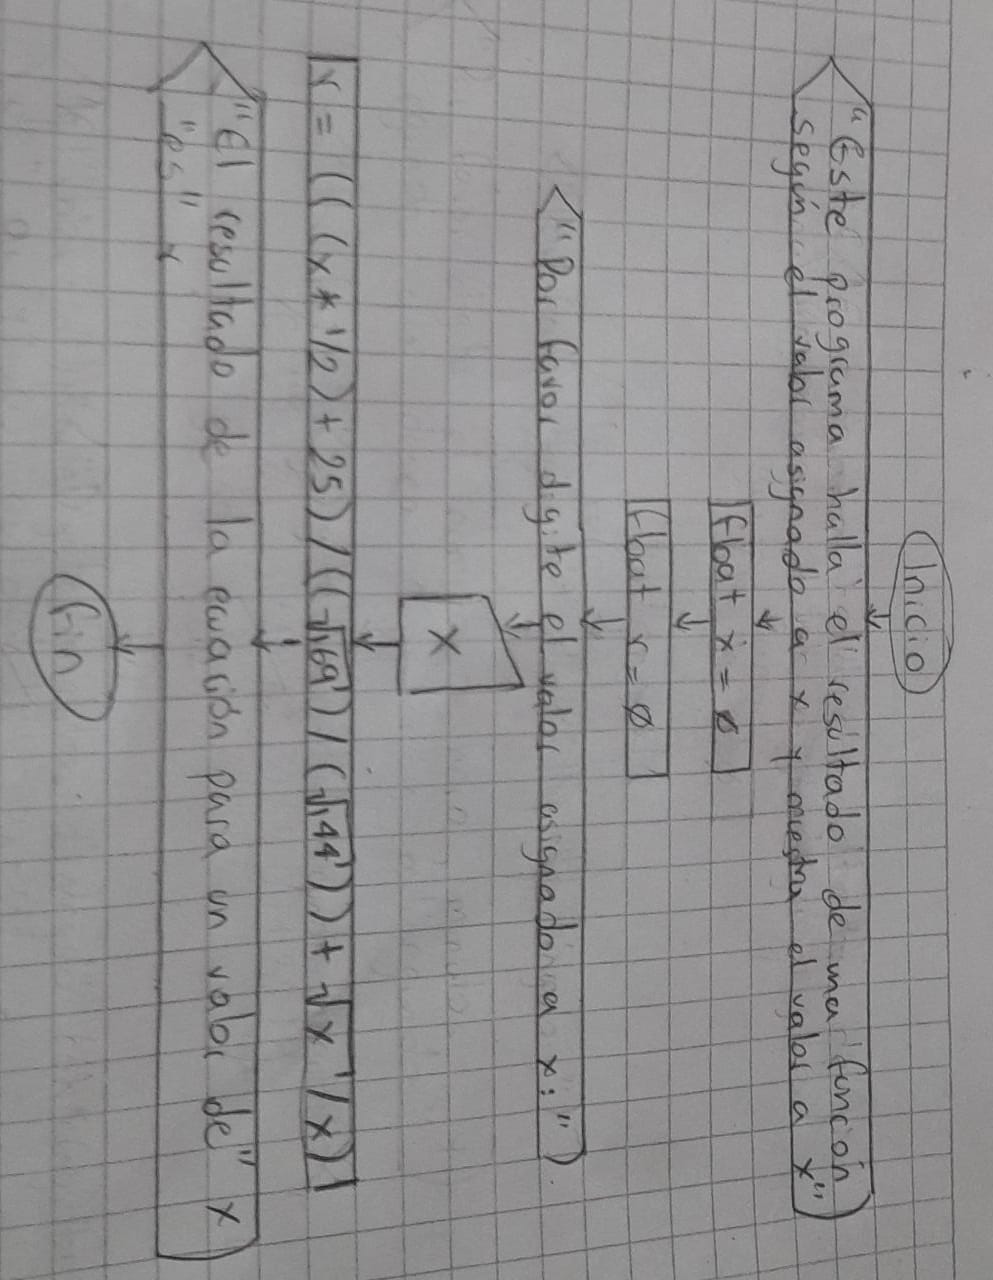 Inicio
"Este programa halla el resultado de una funcon
según el valor asignado a x y muestra el valor a x"
float x = ø
float r = ø
"Por favor digite el valor asignado a x:"
x
r = (((x * 1/2) + 25) / ((√169) / (√144)) + √x / x)
"El resultado de la ecuación para un valor de" x
"es" r
fin